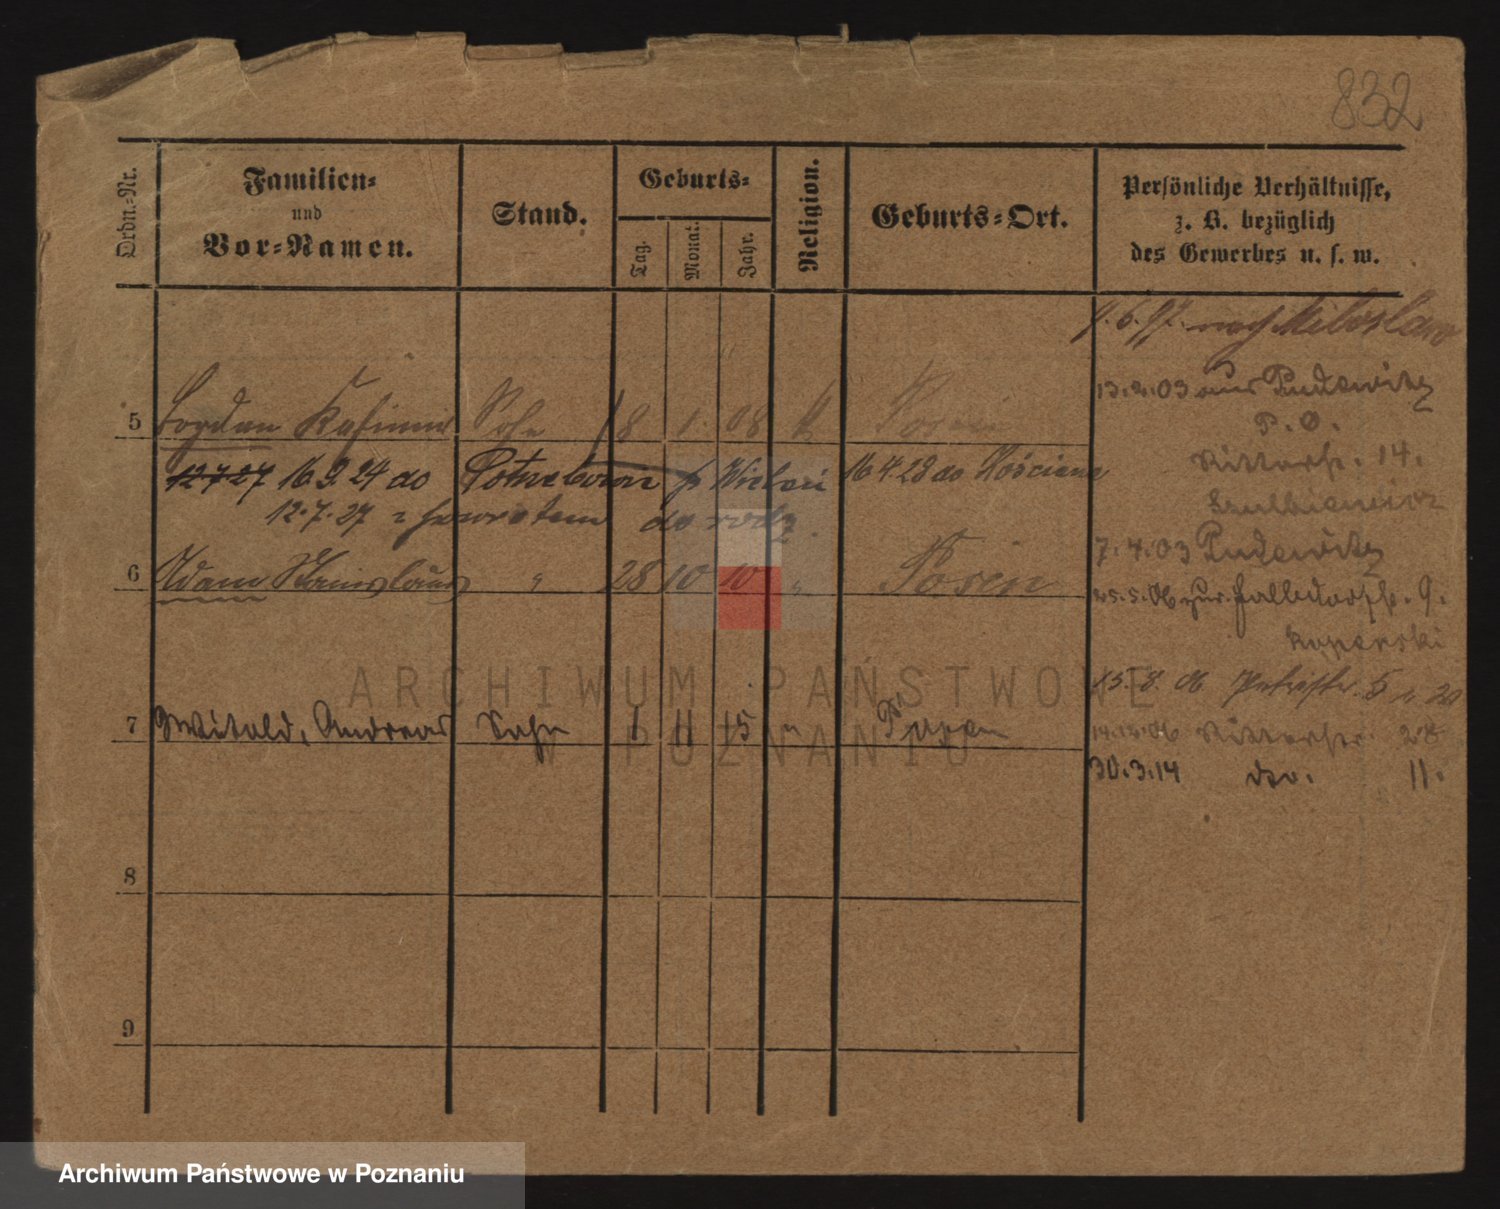 832
Ordn.-Nr.
Familien-
und
Vor-Namen.
Stand.
Geburts-
Tag.
Monat.
Jahr.
Religion.
Geburts-Ort.
Persönliche Verhältnisse,
z. B. bezüglich
des Gewerbes u. s. w.
nach Miloslaw
13.2.03 aus Pudewitz
P. O.
Ritterstr. 14.
7.4.03 Pudewitz
25.5.06 zur. Halbdorfstr. 9.
15.8.06 Petristr. 5
14.12.06 Ritterstr. 28
30.3.14 do. 11.
5 Bogdan Kasimir Sohn 8 1. 08 k Posen
12.7.27 16.9.24 do 16.4.28 do Kościana
12.7.27 z powrotem do rodz.
6 Adam Stanislaus " 28 10 10 " Posen
7 Witold, Andreas Sohn 1 11 15 " Posen
8
9
ARCHIWUM PAŃSTWOWE
W POZNANIU
Archiwum Państwowe w Poznaniu